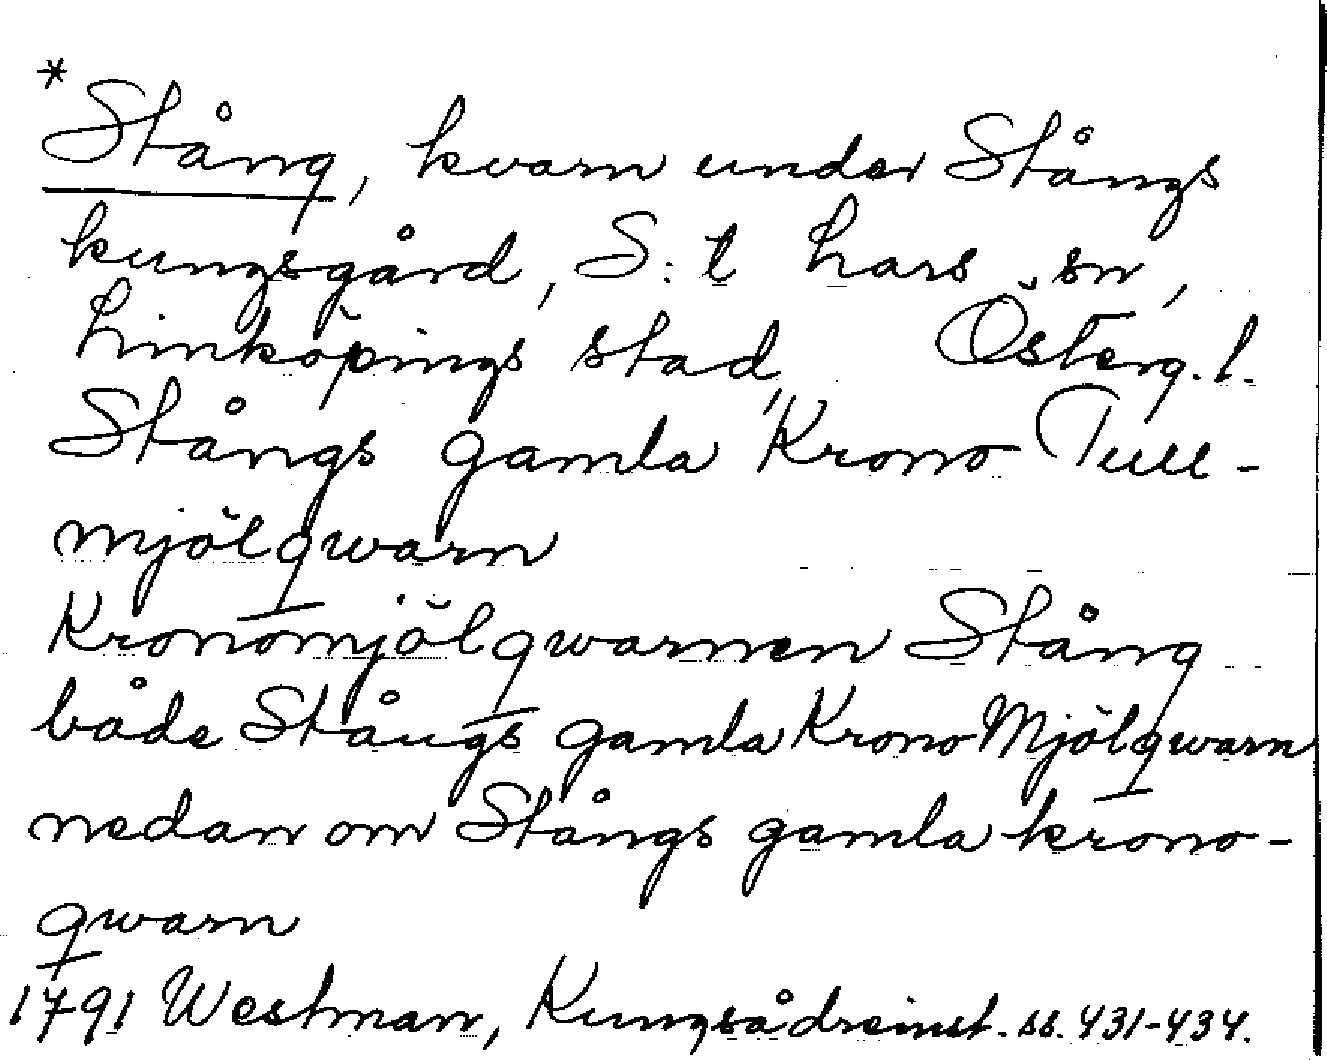 *Stång, kvarn under Stångs
kungsgård, S:t Lars sn,
Linköpings stad, Österg. l.
Stångs gamla Krono Tull-
mjölqwarn
Kronomjölqwarnen Stång
både Stångs gamla Krono Mjölqwarn
nedan om Stångs gamla krono-
qwarn
1791 Westman, Kungsådreinst. ss. 431-434.